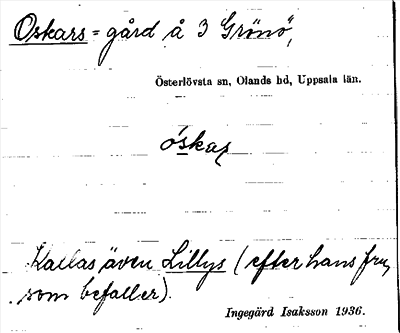 Oskars = gård å 3 Grönö",
Österlövsta sn, Olands hd, Uppsala län.
óskaʃ
Kallas även Lillys (efter hans fru,
som befaller).
Ingegärd Isaksson 1936.